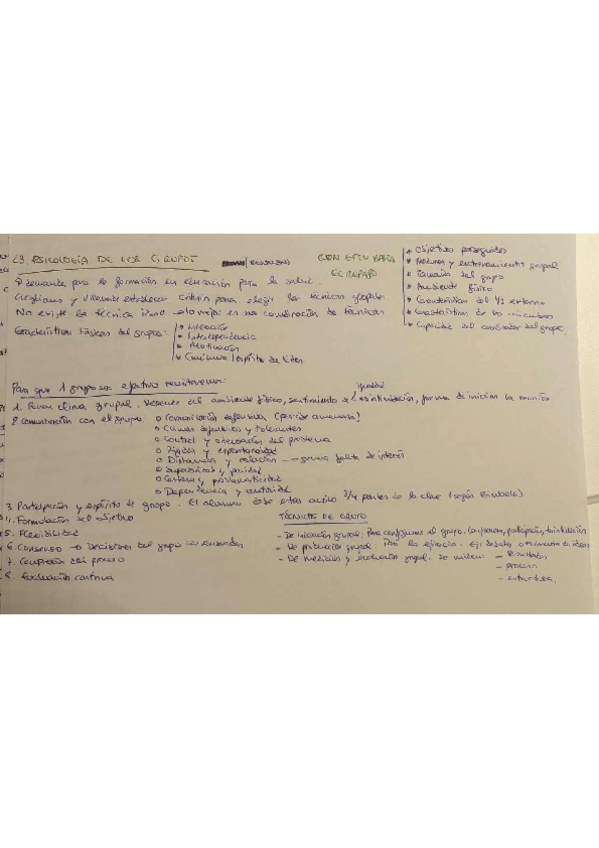 29 PSICOLOGÍA DE LOS GRUPOS (RESUMEN) CON ESTO BASTA EL REPASO
Demanda para la formación en educación para la salud.
y Villaverde establecen criterios para elegir las técnicas grupales
No existe la técnica → lo mejor es una combinación de técnicas
Características básicas del grupo:
• Interacción
• Interdependencia
• Motivación
• Conciencia / espíritu de líder
• Objetivos perseguidos
• Madurez y entrenamiento grupal
• Tamaño del grupo
• Ambiente físico
• Características del externo
• Características de los miembros
• Capacidad del coordinador del grupo
Para que 1 grupo sea efectivo necesitaremos:
1. Buen clima grupal. Depende del ambiente físico, sentimiento de igualdad, desintimidación, forma de iniciar la reunión
2. Comunicación con el grupo
o Comunicación defensiva (percibe amenaza)
o Climas defensivos y tolerantes
o Control y orientación del problema
o Rígidos y espontaneidad
o Distancias y relación → genera falta de interés
o Superioridad y
o Certeza y provisionalidad
o Dependencia y autoridad
3. Participación y espíritu de grupo. El alumno debe estar activo 3/4 partes de la clase (según
4. Formulación del objetivo
5. Flexibilidad
6. Consenso → Decisiones del grupo consensuadas
7. Comprensión del proceso
8. Evaluación continua
TÉCNICAS DE GRUPO
- De iniciación grupal. Para configurar al grupo. (confianza, participación, desinhibición
- De producción grupal. la eficacia. Ej: debate o tormenta de ideas
- De medición y evaluación grupal. Se miden:
- Resultados
- proceso
- estructura.